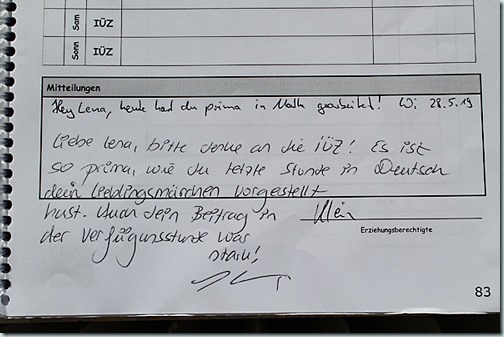 Sam IÜZ
Sonn IÜZ
Mitteilungen
Hey Lena, heute hast du prima in Mathe gearbeitet! Wi 28.5.19
Liebe Lena, bitte denke an die IÜZ! Es ist
so prima, wie du letzte Stunde in Deutsch
dein Lieblingsmärchen vorgestellt
hast. Auch dein Beitrag in
der Verfügunsstunde war
stark!
Klein
Erziehungsberechtigte
83